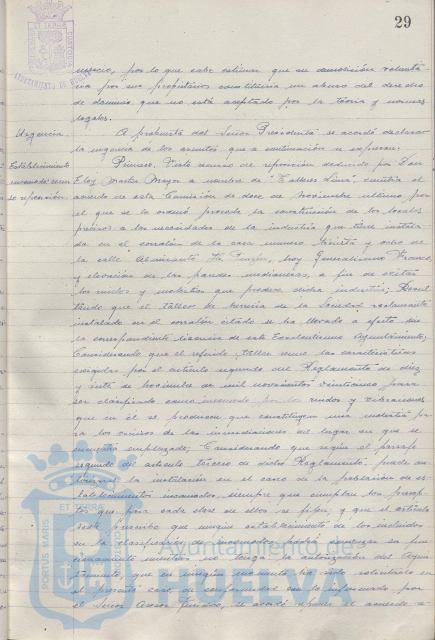 29
AYUNTAMIENTO DE HUELVA
mercio, por lo que cabe estimar que su demolición volunta-
ria por sus propietarios constituiría un abuso del derecho
de dominio que no está aceptado por la teoría y normas
legales.
Urgencia.
A propuesta del Señor Presidente se acordó declarar
la urgencia de los asuntos que a continuación se expresan:
Establecimiento
incomodo recurso
de reposición.
Primero. Visto recurso de reposición deducido por Don
Eloy Martin Mayor a nombre de "Talleres Lima", contra el
acuerdo de esta Comisión de doce de Noviembre último por
el que se le ordenó proceda a la construcción de los locales
precisos a las necesidades de la industria que tiene instala-
da en el corralón de la casa numero treinta y ocho de
la calle Almirante H. Pinzón, hoy Generalísimo Franco,
y elevación de las paredes medianeras, a fin de evitar
los ruidos y molestias que produce dicha industria; Resul-
tando que el taller de herrería de la Sociedad reclamante
instalado en el corralón citado se ha llevado a efecto sin
la correspondiente licencia de este Excelentísimo Ayuntamiento;
Considerando que el referido taller reune las características
exigidas por el artículo segundo del Reglamento de diez
y siete de Noviembre de mil novecientos veinticinco para
ser clasificado como incomodo por los ruidos y vibraciones
que en él se producen que constituyen una molestia pa-
ra los vecinos de las inmediaciones del lugar en que se
encuentra emplazado; Considerando que según el párrafo
segundo del artículo tercero de dicho Reglamento, puede au-
torizarse la instalación en el casco de la población de es-
tablecimientos incomodos, siempre que cumplan los precep-
tos que para cada clase de ellos se fijen, y que el artículo
prescribe que ningún establecimiento de los incluidos
en la clasificación de incomodos podrá comenzar su fun-
cionamiento mientras no tenga la autorización del Ayun-
tamiento, que en ningún momento ha sido solicitada en
el presente caso, de conformidad con lo informado por
el Señor Asesor Jurídico, se acordó reponer el acuerdo
PORTUS MARIS ET TERRAE CUSTODIA
Ayuntamiento de
HUELVA